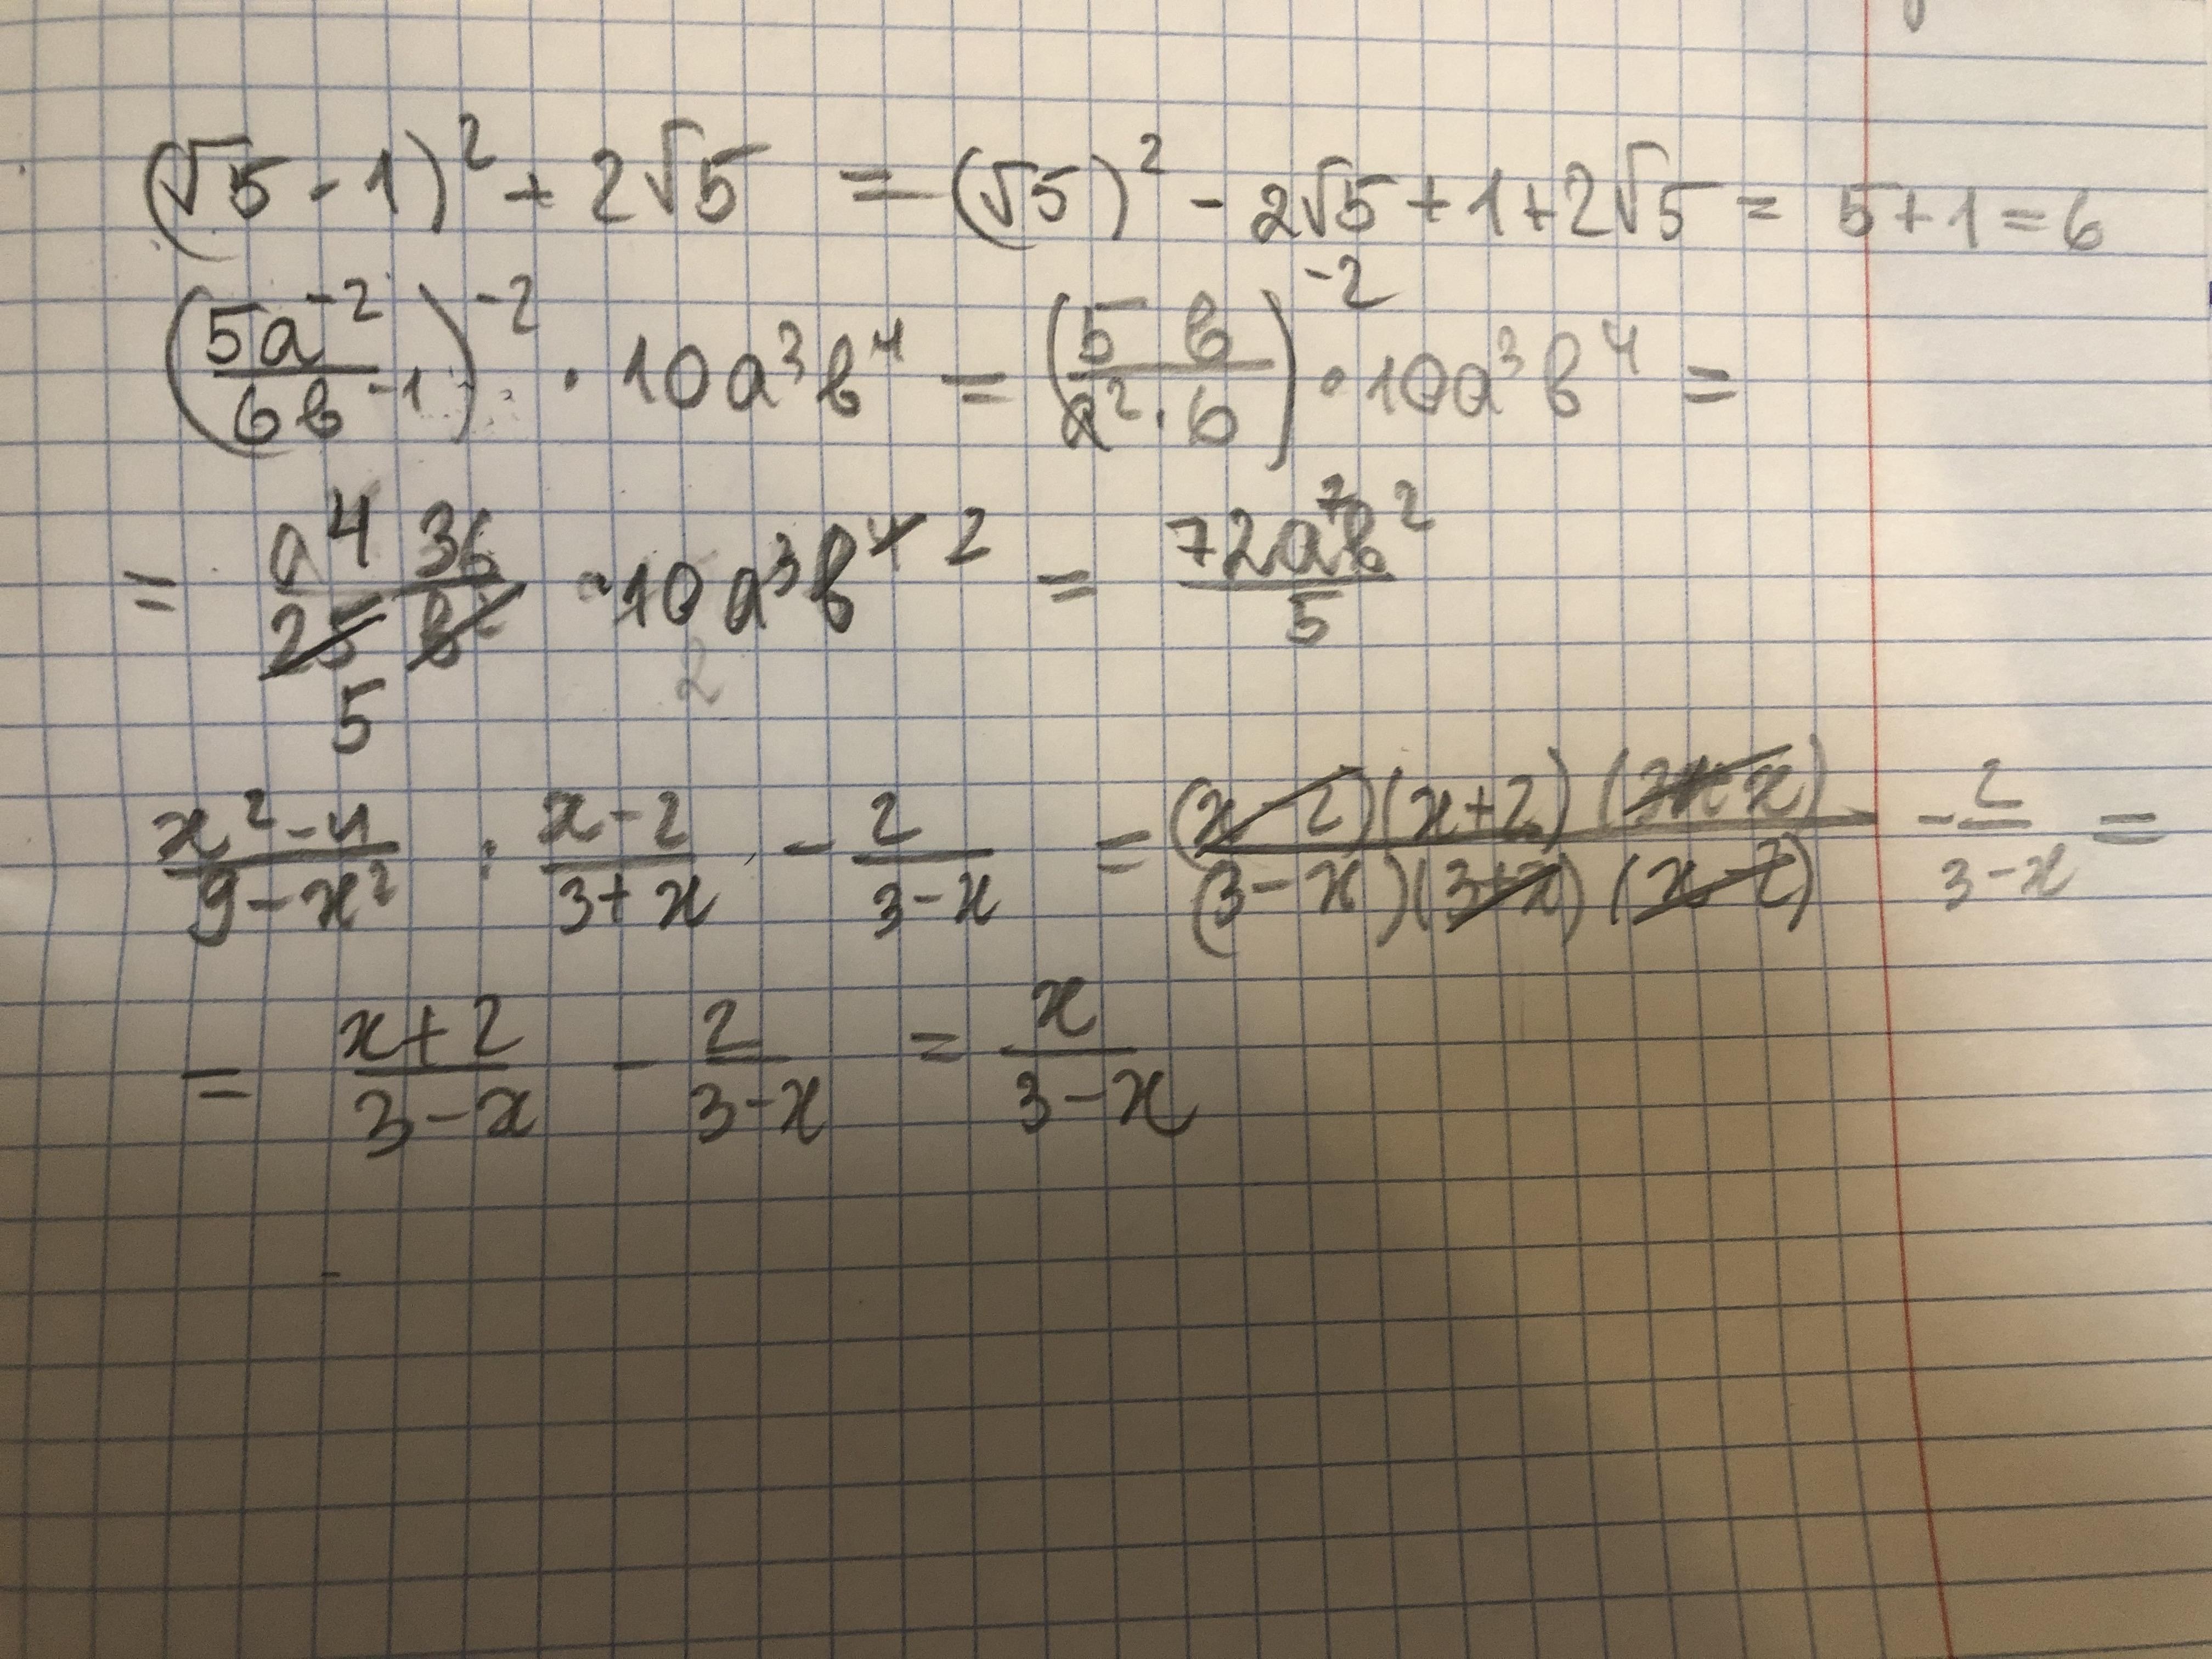 (√5 - 1)² + 2√5 = (√5)² - 2√5 + 1 + 2√5 = 5 + 1 = 6
(5a⁻²/6в⁻¹)⁻² · 10a³в⁴ = (5 в/a² · 6)⁻² · 10a³в⁴ =
= a⁴ 36/25 в² · 10a³в⁴ 2 = 72a⁷в²/5
5 2
x² - 4/9 - x² : x - 2/3 + x - 2/3 - x = (x - 2)(x + 2)(3 + x)/(3 - x)(3 + x)(x - 2) - 2/3 - x =
= x + 2/3 - x - 2/3 - x = x/3 - x